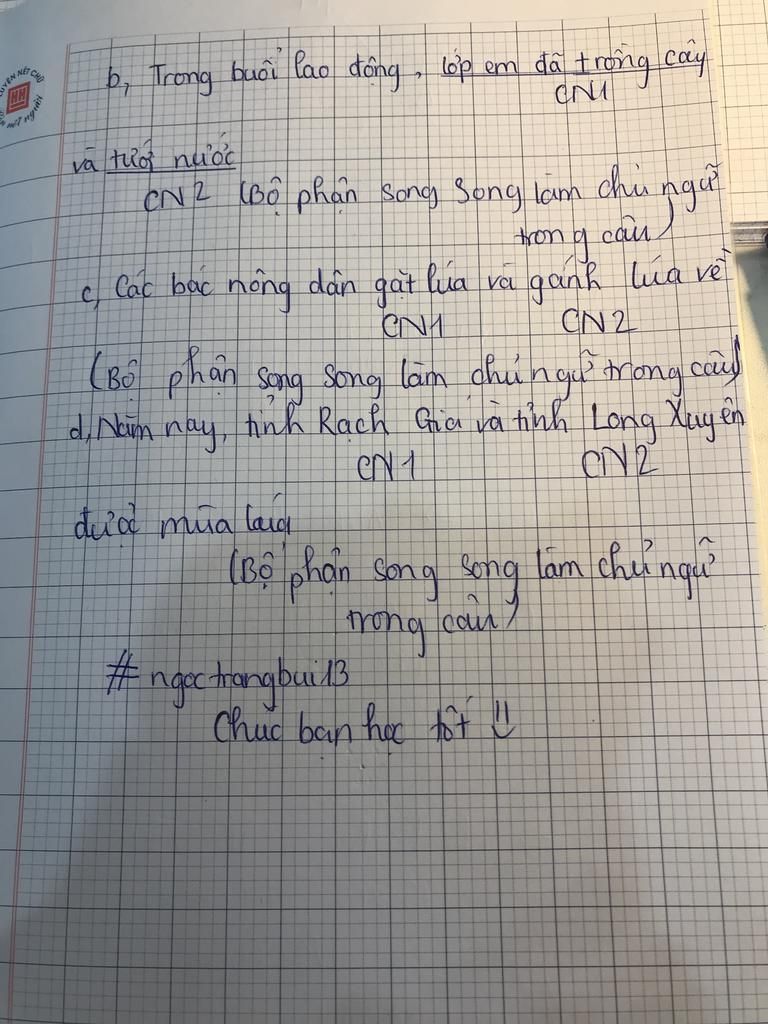 b, Trong buổi lao động, lớp em đã trồng cây
CN1
và tưới nước
CN2 (Bộ phận song song làm chủ ngữ
trong câu)
c, Các bác nông dân gặt lúa và gánh lúa về
CN1 CN2
(Bộ phận song song làm chủ ngữ trong câu)
d, Năm nay, tỉnh Rạch Giá và tỉnh Long Xuyên
CN1 CN2
được mùa lúa
(Bộ phận song song làm chủ ngữ
trong câu)
# ngoctrangbui13
Chuc bạn học tốt !!